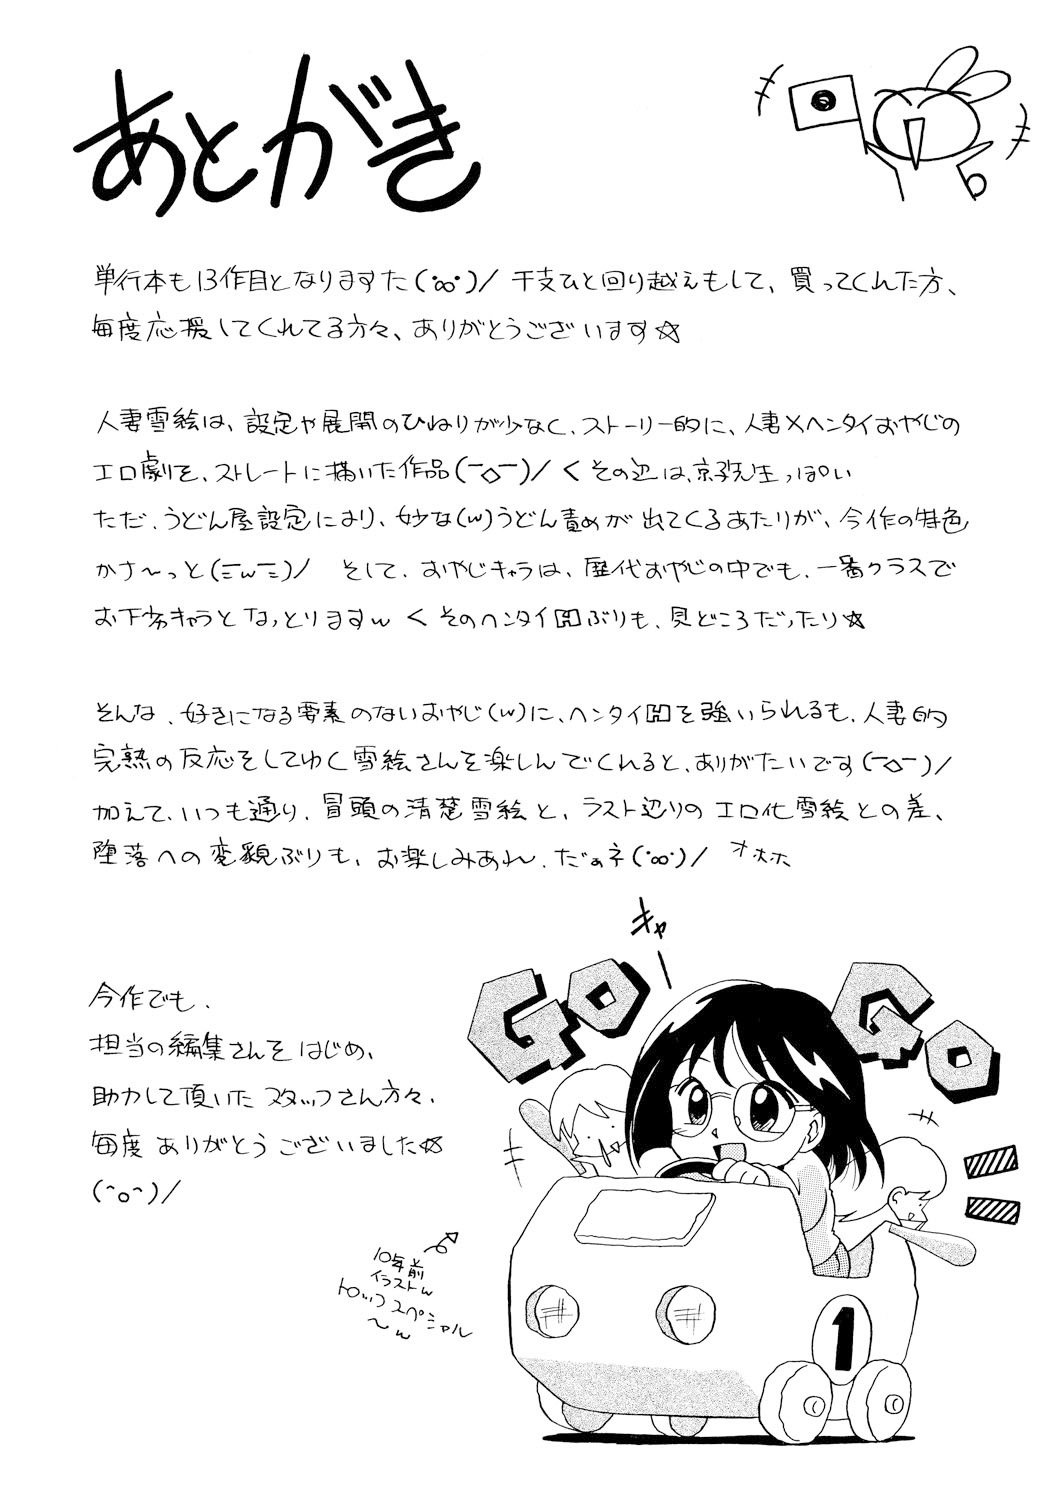 あとがき
単行本も13作目となりますた(・∞・)/ 干支ひと回り越えもして、買ってくれた方、
毎度応援してくれてる方々、ありがとうございます☆
人妻雪絵は、設定や展開のひねりが少なく、ストーリー的に、人妻×ヘンタイおやじの
エロ劇を、ストレートに描いた作品(￣◇￣)/ くその辺は、京子先生っぽい
ただ、うどん屋設定により、妙な(w)うどん責めが出てくるあたりが、今作の特色
かさ〜っと(ΞwΞ)/ そして、おやじキャラは、歴代おやじの中でも、一番クラスで
お下劣キャラとなっとりますw くそのヘンタイHぶりも、見どころだったり☆
そんな、好きになる要素のないおやじ(w)に、ヘンタイHを強いられるも、人妻的
完熟の反応をしてゆく雪絵さんを楽しんでくれると、ありがたいです(￣◇￣)/
加えて、いつも通り、冒頭の清楚雪絵と、ラスト辺りのエロ化雪絵との差、
堕落への変貌ぶりも、お楽しみあれ、だぁネ(・∞・)/ オホホ
キャー
GO GO
今作でも、
担当の編集さんをはじめ、
助力して頂いたスタッフさん方々、
毎度ありがとうございました☆
(^o^)/
10年前
イラストw
トップスペシャル
〜w
1